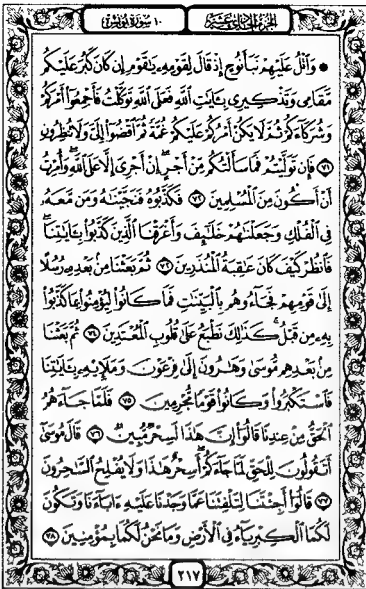 الجزء الحادي عشر ١٠ سورة يونس
۞ وَٱتْلُ عَلَيْهِمْ نَبَأَ نُوحٍ إِذْ قَالَ لِقَوْمِهِۦ يَٰقَوْمِ إِن كَانَ كَبُرَ عَلَيْكُم
مَّقَامِى وَتَذْكِيرِى بِـَٔايَٰتِ ٱللَّهِ فَعَلَى ٱللَّهِ تَوَكَّلْتُ فَأَجْمِعُوٓا۟ أَمْرَكُمْ
وَشُرَكَآءَكُمْ ثُمَّ لَا يَكُنْ أَمْرُكُمْ عَلَيْكُمْ غُمَّةً ثُمَّ ٱقْضُوٓا۟ إِلَىَّ وَلَا تُنظِرُونِ
٧١ فَإِن تَوَلَّيْتُمْ فَمَا سَأَلْتُكُم مِّنْ أَجْرٍ إِنْ أَجْرِىَ إِلَّا عَلَى ٱللَّهِ وَأُمِرْتُ
أَنْ أَكُونَ مِنَ ٱلْمُسْلِمِينَ ٧٢ فَكَذَّبُوهُ فَنَجَّيْنَٰهُ وَمَن مَّعَهُۥ
فِى ٱلْفُلْكِ وَجَعَلْنَٰهُمْ خَلَٰٓئِفَ وَأَغْرَقْنَا ٱلَّذِينَ كَذَّبُوا۟ بِـَٔايَٰتِنَا
فَٱنظُرْ كَيْفَ كَانَ عَٰقِبَةُ ٱلْمُنذَرِينَ ٧٣ ثُمَّ بَعَثْنَا مِنۢ بَعْدِهِۦ رُسُلًا
إِلَىٰ قَوْمِهِمْ فَجَآءُوهُم بِٱلْبَيِّنَٰتِ فَمَا كَانُوا۟ لِيُؤْمِنُوا۟ بِمَا كَذَّبُوا۟
بِهِۦ مِن قَبْلُ كَذَٰلِكَ نَطْبَعُ عَلَىٰ قُلُوبِ ٱلْمُعْتَدِينَ ٧٤ ثُمَّ بَعَثْنَا
مِنۢ بَعْدِهِم مُّوسَىٰ وَهَٰرُونَ إِلَىٰ فِرْعَوْنَ وَمَلَإِي۟هِۦ بِـَٔايَٰتِنَا
فَٱسْتَكْبَرُوا۟ وَكَانُوا۟ قَوْمًا مُّجْرِمِينَ ٧٥ فَلَمَّا جَآءَهُمُ
ٱلْحَقُّ مِنْ عِندِنَا قَالُوٓا۟ إِنَّ هَٰذَا لَسِحْرٌ مُّبِينٌ ٧٦ قَالَ مُوسَىٰٓ
أَتَقُولُونَ لِلْحَقِّ لَمَّا جَآءَكُمْ أَسِحْرٌ هَٰذَا وَلَا يُفْلِحُ ٱلسَّٰحِرُونَ
٧٧ قَالُوٓا۟ أَجِئْتَنَا لِتَلْفِتَنَا عَمَّا وَجَدْنَا عَلَيْهِ ءَابَآءَنَا وَتَكُونَ
لَكُمَا ٱلْكِبْرِيَآءُ فِى ٱلْأَرْضِ وَمَا نَحْنُ لَكُمَا بِمُؤْمِنِينَ ٧٨
٢١٧